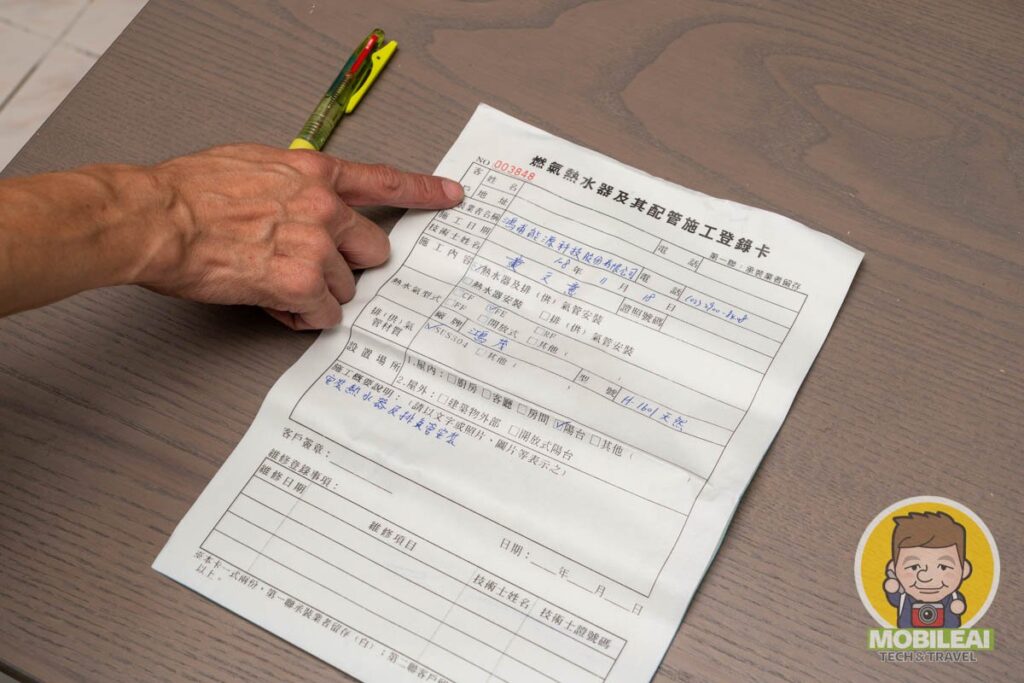 燃氣熱水器及其配管施工登錄卡
NO 003848
第一聯：承裝業者留存
客戶 姓名 電話
地址
承裝業者名稱 鴻茂能源科技股份有限公司 電話
施工日期 108 年 11 月 18 日
技術士姓名 證照號碼
施工內容 ☑熱水器及排（供）氣管安裝
□熱水器安裝 □排（供）氣管安裝
熱水氣型式 □CF ☑FE □RF
□FF □開放式 □其他（ ）
廠牌 型號 H-1601天然
排（供）氣管材質 ☑SUS304 □其他（ ）
設置場所 1.屋內：□廚房 □客廳 □房間 ☑陽台 □其他（
2.屋外：□建築物外部 □開放式陽台
施工概要說明：（請以文字或照片、圖片等表示之）
安裝熱水器及排氣管安裝
客戶簽章：
日期： 年 月 日
維修登錄事項：
維修日期 維修項目 技術士姓名 技術士證號碼
※本卡一式兩份，第一聯承裝業者留存（白）；第二聯客戶留
以上。
MOBILEAI
TECH&TRAVEL